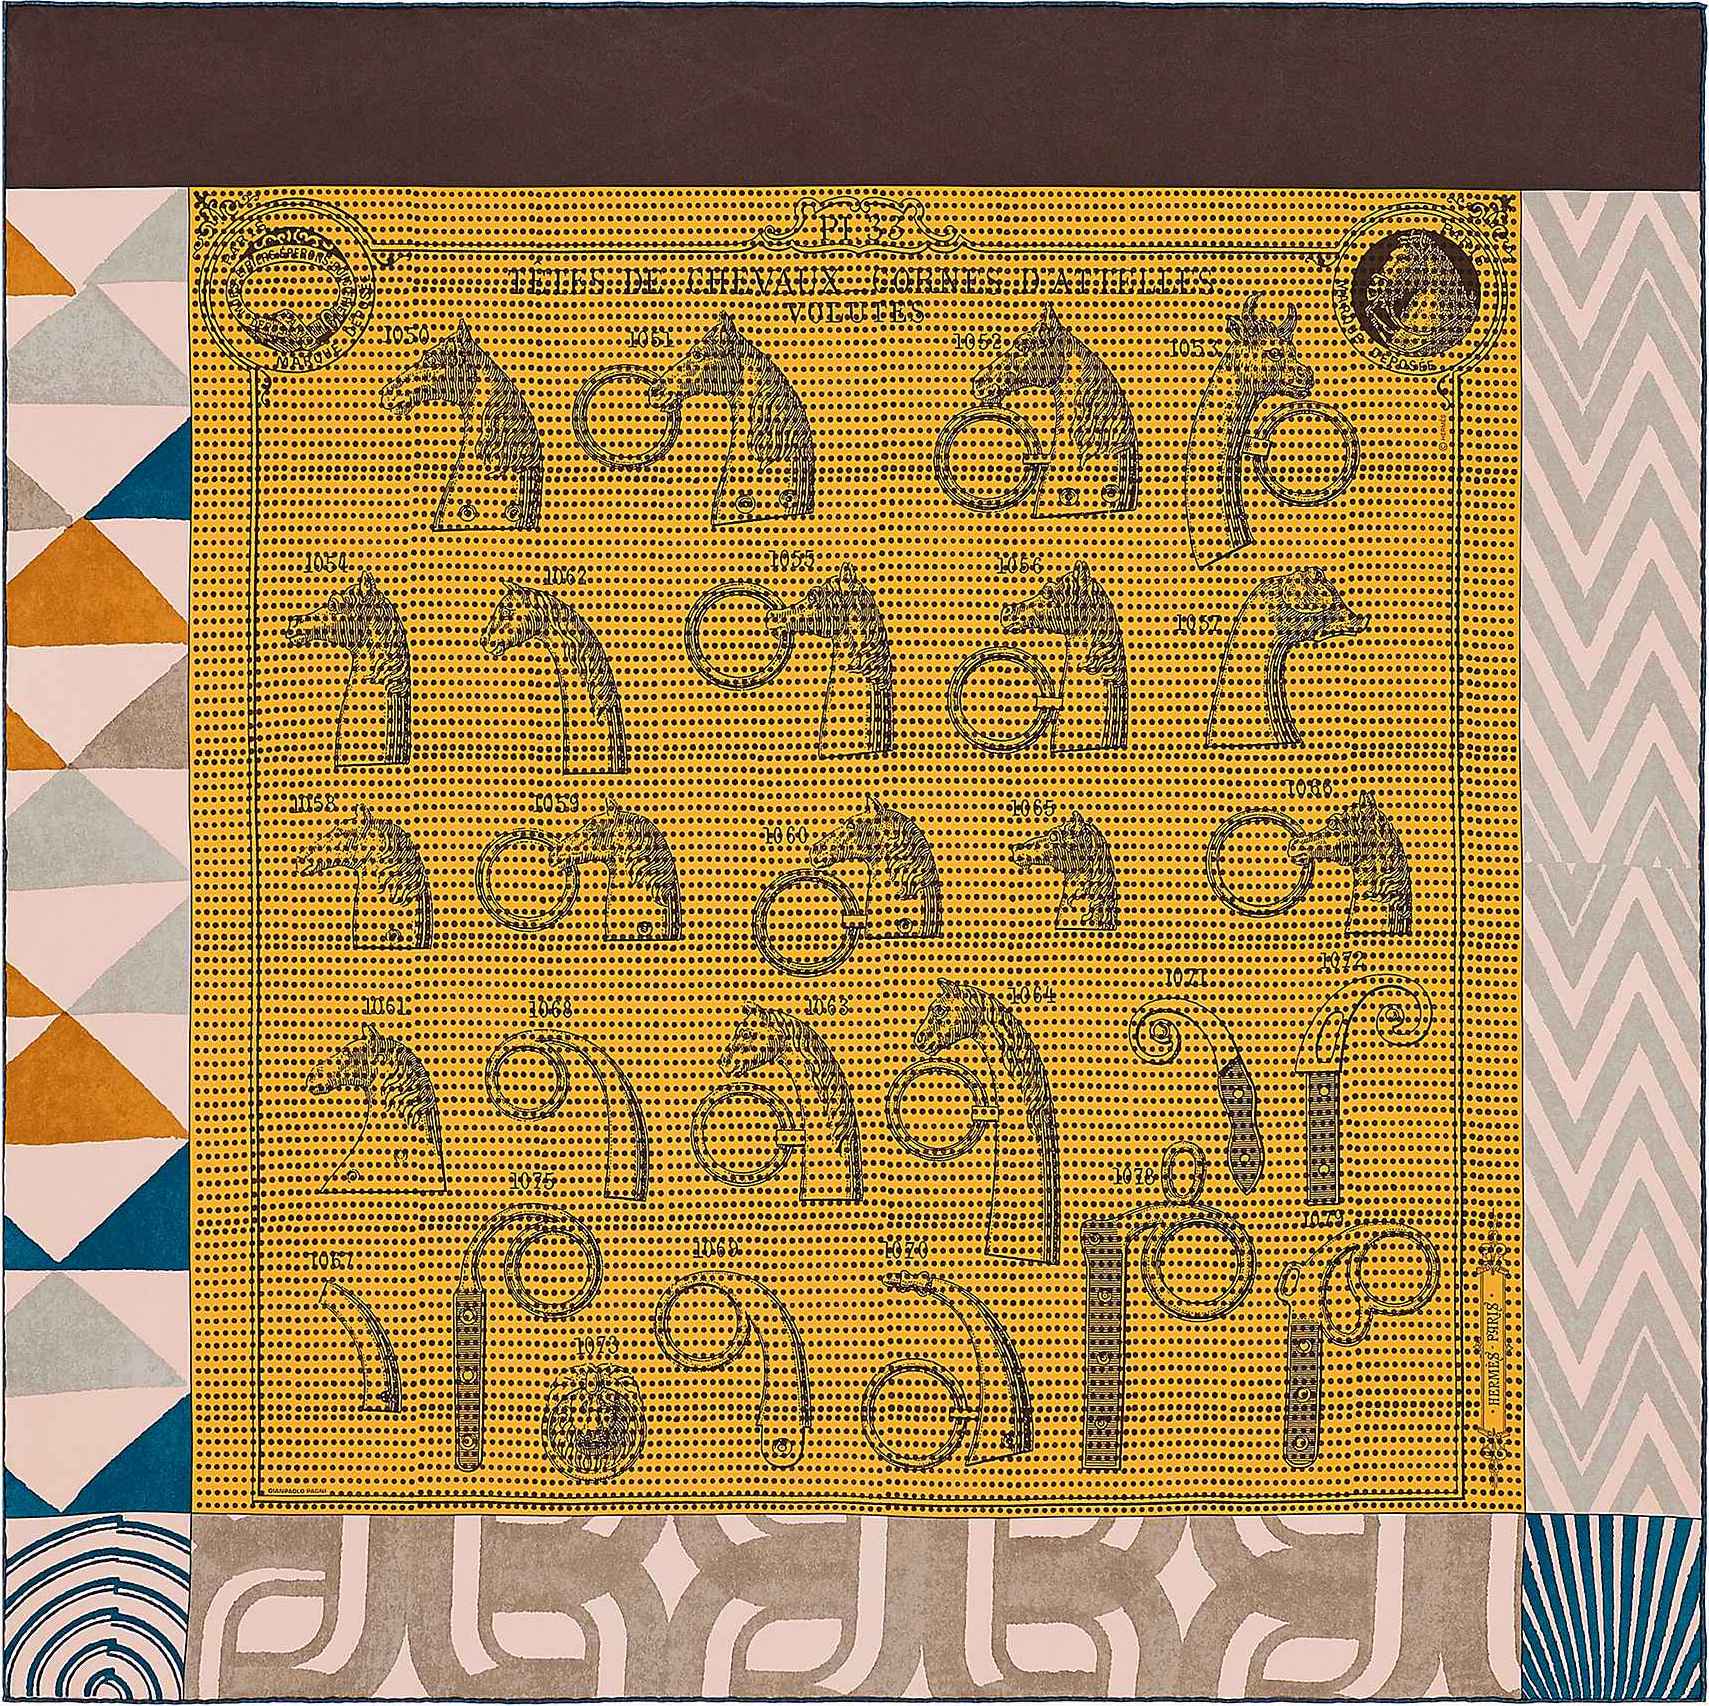 Pl. 33
TÊTES DE CHEVAUX _ CORNES D'ATTELLES
VOLUTES
PARIS
MARQUE
PARIS
MARQUE DEPOSÉE
1050 1051 1052 1053
© HERMÈS
1054 1062 1055 1056 1057
1058 1059 1060 1065 1066
1061 1068 1063 1064 1071 1072
1075 1078
1067 1069 1070 1079
1073
· HERMÈS · PARIS ·
GIANPAOLO PAGNI